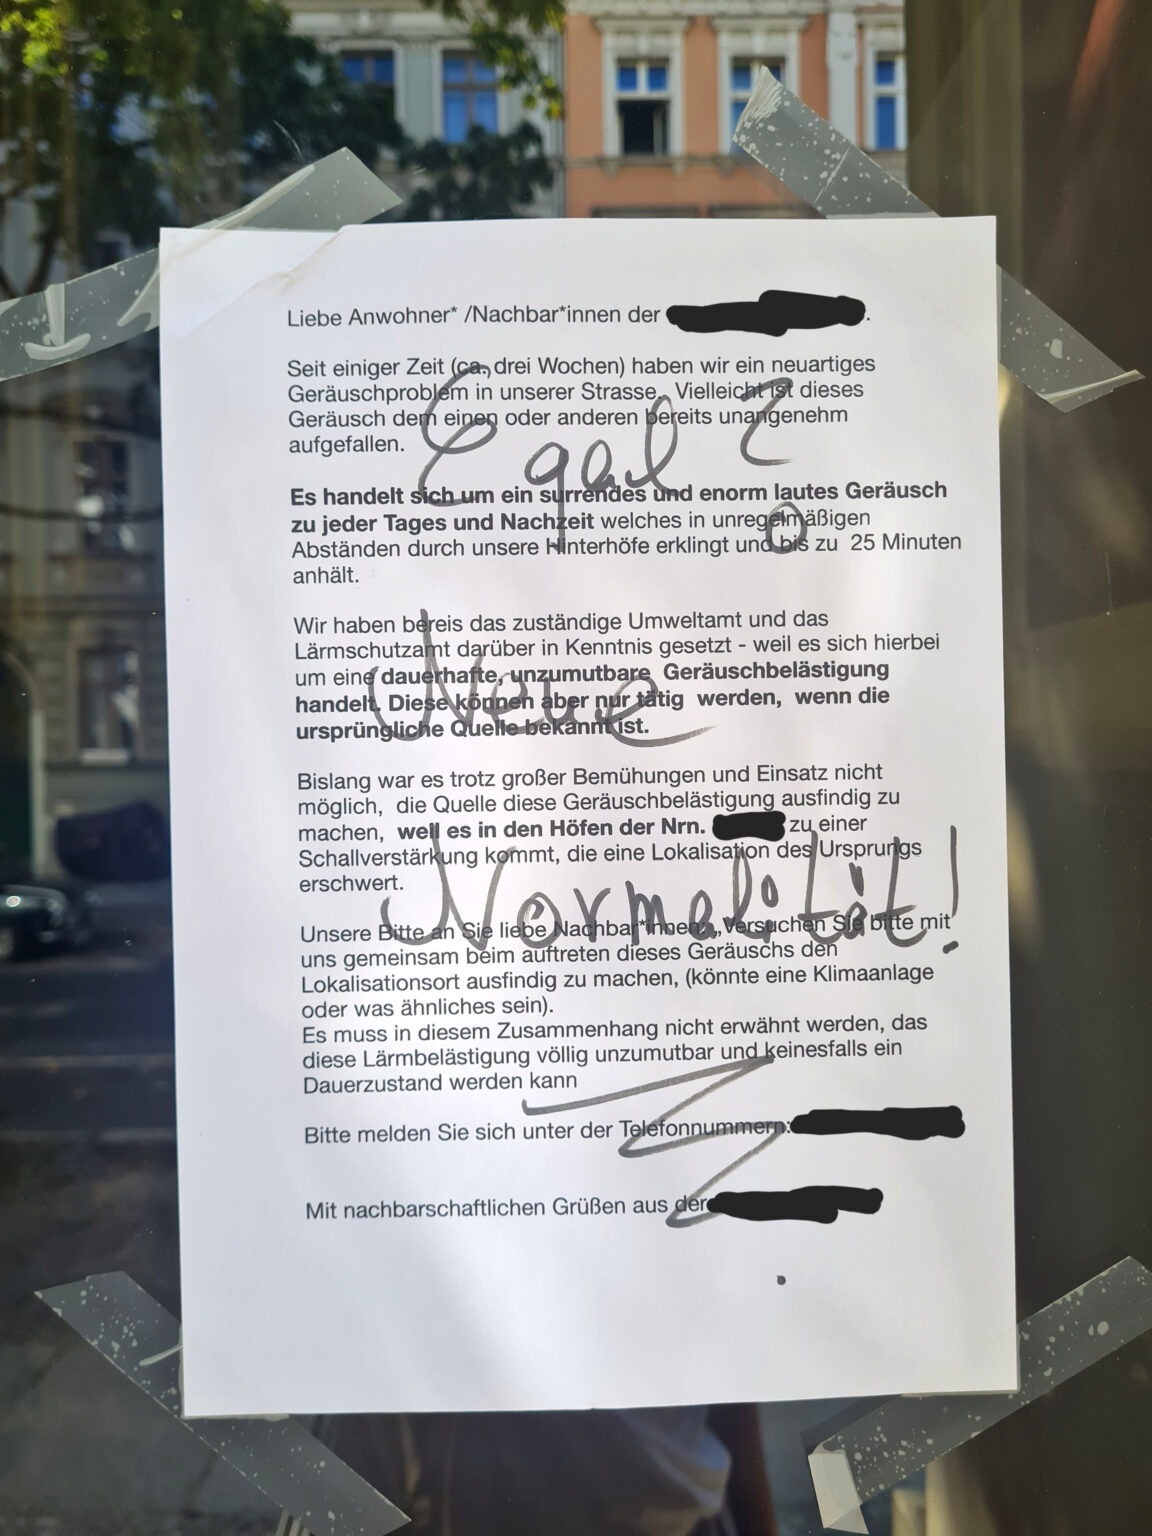 Liebe Anwohner* /Nachbar*innen der .
Seit einiger Zeit (ca. drei Wochen) haben wir ein neuartiges
Geräuschproblem in unserer Strasse. Vielleicht ist dieses
Geräusch dem einen oder anderen bereits unangenehm
aufgefallen.
Egal?
Es handelt sich um ein surrendes und enorm lautes Geräusch
zu jeder Tages und Nachzeit welches in unregelmäßigen
Abständen durch unsere Hinterhöfe erklingt und bis zu 25 Minuten
anhält.
Wir haben bereis das zuständige Umweltamt und das
Lärmschutzamt darüber in Kenntnis gesetzt - weil es sich hierbei
um eine dauerhafte, unzumutbare Geräuschbelästigung
handelt. Diese können aber nur tätig werden, wenn die
ursprüngliche Quelle bekannt ist.
Neue
Bislang war es trotz großer Bemühungen und Einsatz nicht
möglich, die Quelle diese Geräuschbelästigung ausfindig zu
machen, weil es in den Höfen der Nrn. zu einer
Schallverstärkung kommt, die eine Lokalisation des Ursprungs
erschwert.
Normalität!
Unsere Bitte an Sie liebe Nachbar*innen: „Versuchen Sie bitte mit
uns gemeinsam beim auftreten dieses Geräuschs den
Lokalisationsort ausfindig zu machen, (könnte eine Klimaanlage
oder was ähnliches sein).
Es muss in diesem Zusammenhang nicht erwähnt werden, das
diese Lärmbelästigung völlig unzumutbar und keinesfalls ein
Dauerzustand werden kann
Bitte melden Sie sich unter der Telefonnummern:
Mit nachbarschaftlichen Grüßen aus der